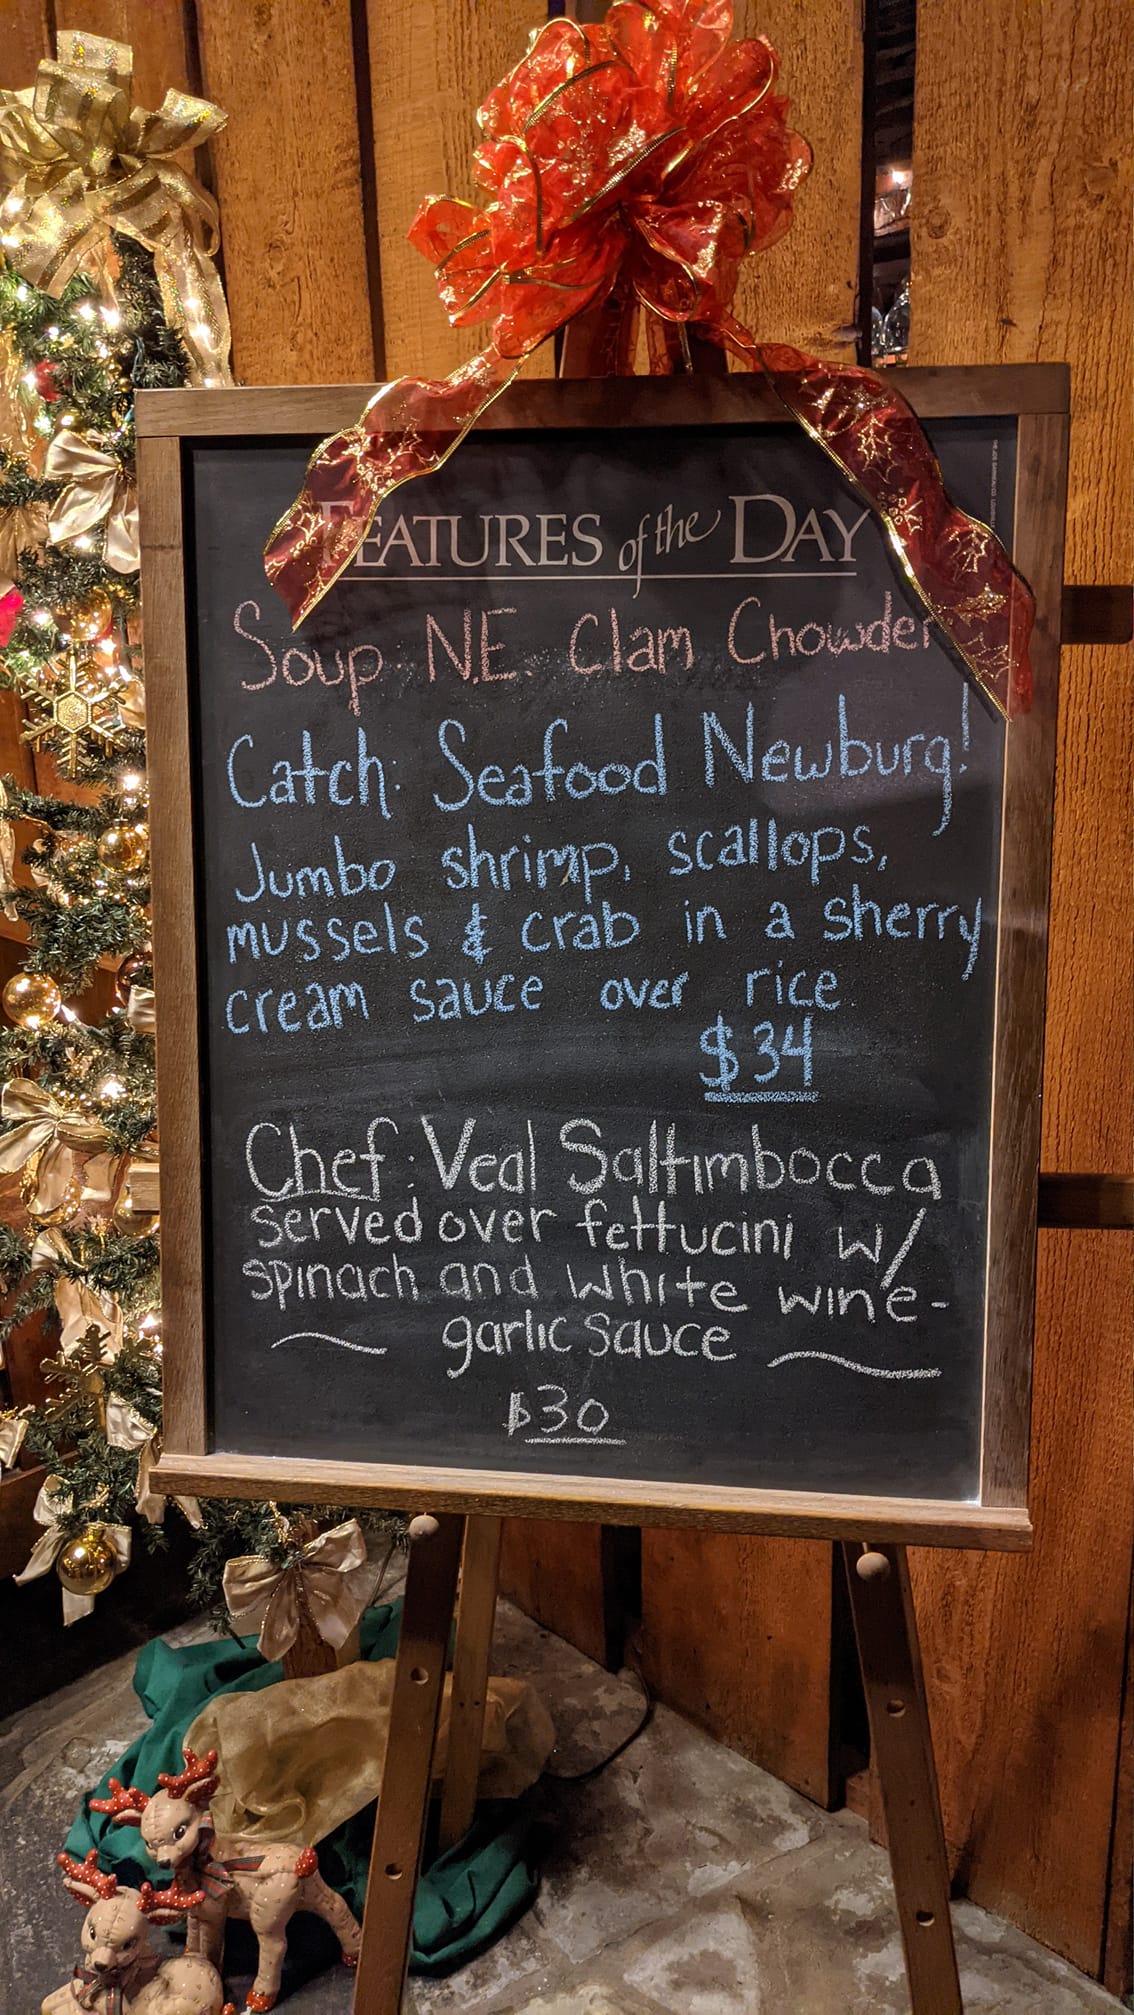 FEATURES of the DAY
Soup: N.E. Clam Chowder
Catch: Seafood Newburg!
Jumbo shrimp, scallops,
mussels & crab in a sherry
cream sauce over rice
$34
Chef: Veal Saltimbocca
served over fettucini w/
spinach and white wine-
garlic sauce
$30